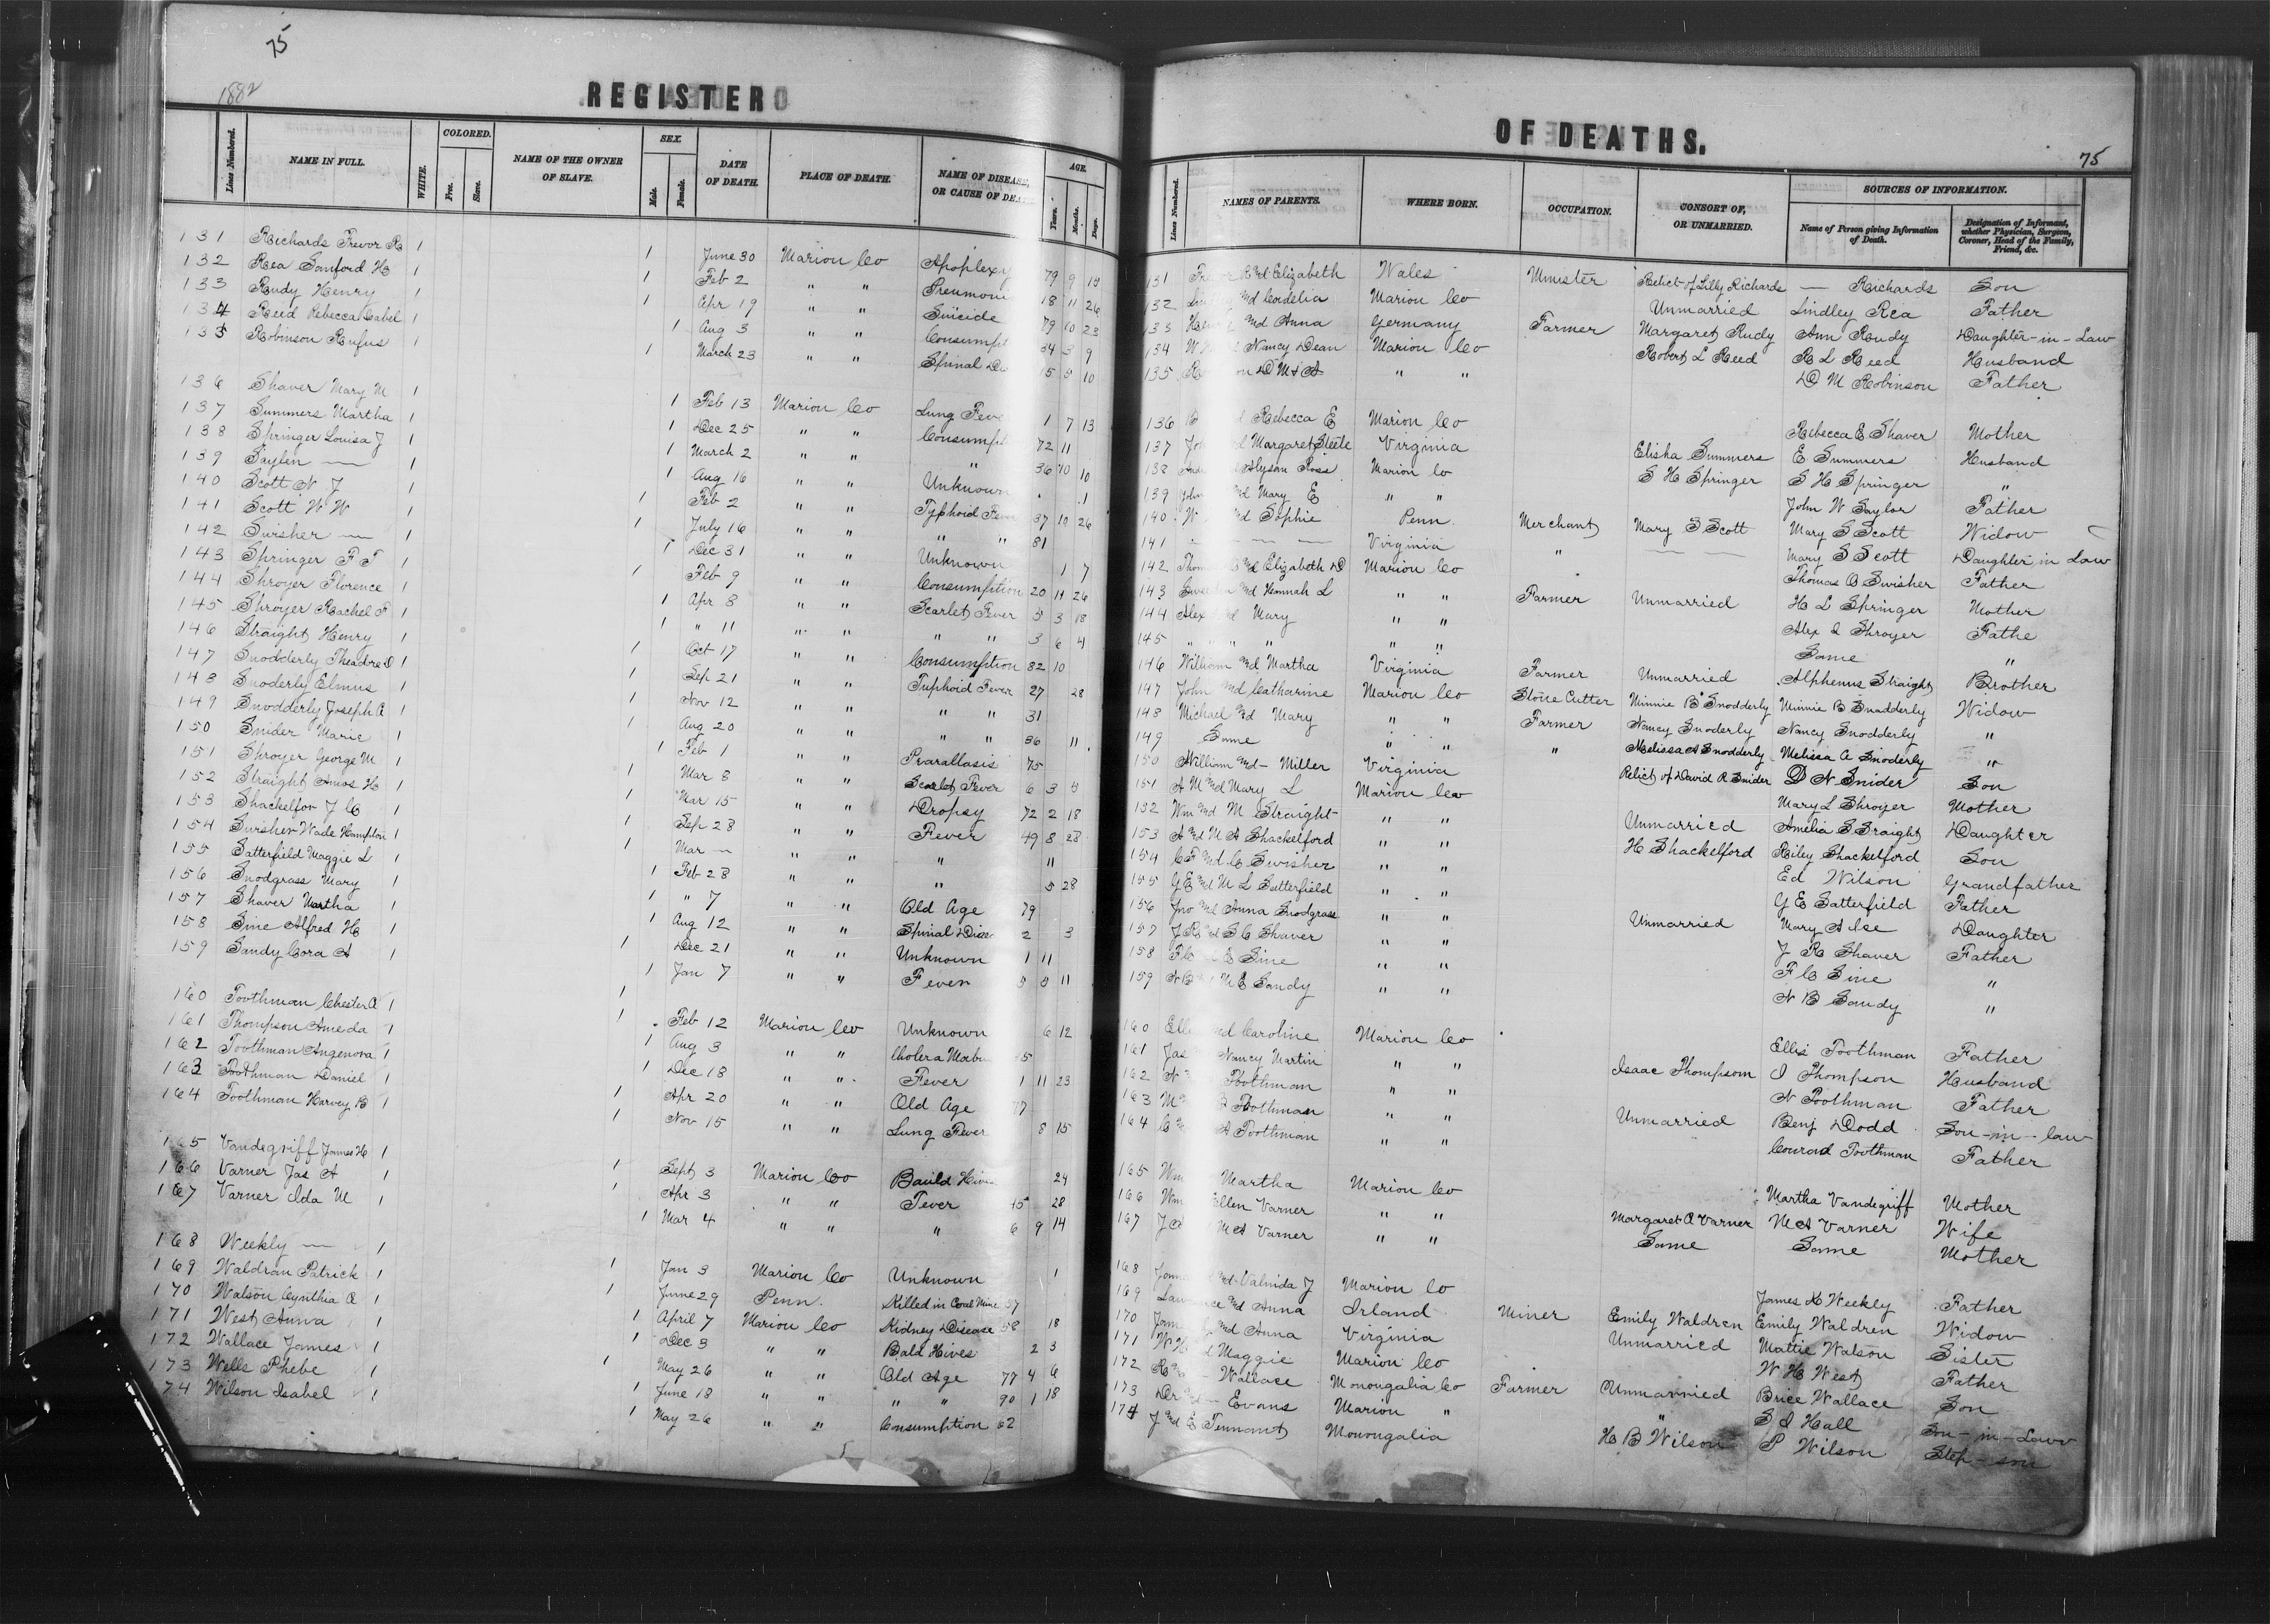 75
1882
REGISTER O
Lines Numbered. NAME IN FULL. WHITE. COLORED. Free. Slave. NAME OF THE OWNER OF SLAVE. SEX. Male. Female. DATE OF DEATH. PLACE OF DEATH. NAME OF DISEASE, OR CAUSE OF DEA AGE. Years. Months. Days.
131 Richards Trevor R 1 1 June 30 Marion Co Apoplexy 79 9
132 Rea Sanford H 1 1 Feb 2 " " Pneumoni 18 11 26
133 Rudy Henry 1 1 Apr 19 " " Suicide 79 10 23
134 Reed Rebecca Cabel 1 1 Aug 3 " " Consumpt 34 3 9
135 Robinson Rufus 1 1 March 23 " " Spinal 15 5 10
136 Shaver Mary M 1 1 Feb 13 Marion Co Lung Feve 1 7 13
137 Summers Martha 1 1 Dec 25 " " Consumpt 72 11
138 Springer Louisa J 1 1 March 2 " " " 36 10 10
139 Saylen — 1 1 Aug 16 " " Unknown 1
140 Scott N J 1 1 Feb 2 " " Typhoid Fever 37 10 26
141 Scott W W 1 1 July 16 " " " " 81
142 Swisher — 1 1 Dec 31 " " Unknown 1 7
143 Springer F T 1 1 Feb 9 " " Consumption 20 11 26
144 Shroyer Florence 1 1 Apr 8 " " Scarlet Fever 5 3 18
145 Shroyer Rachel F 1 1 " 11 " " " " 3 6 4
146 Straight Henry 1 1 Oct 17 " " Consumption 32 10
147 Snodderly Theadore D 1 1 Sep 21 " " Tuphoid Fever 27 28
148 Snoderly Elmus 1 1 Nov 12 " " " " 31
149 Snodderly Joseph A 1 1 Aug 20 " " " " 36 11
150 Snider Marie 1 1 Feb 1 " " Prarallasis 75
151 Shroyer George M 1 1 Mar 8 " " Scarlet Fever 6 3 5
152 Straight Amos H 1 1 Mar 15 " " Dropsy 72 2 18
153 Shackelfor J C 1 1 Sep 28 " " Fever 49 8 28
154 Swisher Wade Hampton 1 1 Mar — " " " 11
155 Satterfield Maggie L 1 1 Feb 28 " " " 5 28
156 Snodgrass Mary 1 1 " 7 " " Old Age 79
157 Shaver Martha 1 1 Aug 12 " " Spinal Disea 2 3
158 Sine Alfred H 1 1 Dec 21 " " Unknown 1 11
159 Sandy Cora A 1 1 Jan 7 " " Fever 5 5 11
160 Toothman Chester A 1 1 Feb 12 Marion Co Unknown 6 12
161 Thompson Ameda 1 1 Aug 3 " " Cholera Morbu 45
162 Toothman Angenora 1 1 Dec 18 " " Fever 1 11 23
163 Toothman Daniel 1 1 Apr 20 " " Old Age 77
164 Toothman Harvey B 1 1 Nov 15 " " Lung Fever 8 15
165 Vandegriff James H 1 1 Sept 3 Marion Co Bauld Hives 24
166 Varner Jas A 1 1 Apr 3 " " Fever 45 28
167 Varner Ida M 1 1 Mar 4 " " " 6 9 14
168 Weekly — 1 1 Jan 3 Marion Co Unknown 1
169 Waldran Patrick 1 1 June 29 Penn. Killed in Coal Mine 37
170 Watson Cynthia A 1 1 April 7 Marion Co Kidney Disease 58 18
171 West Anna 1 1 Dec 3 " " Bald Hives 2 3
172 Wallace James 1 1 May 26 " " Old Age 77 4 6
173 Wells Phebe 1 1 June 18 " " " " 90 1 18
174 Wilson Isabel 1 1 May 26 " " Consumption 62
OF DEATHS.
75
Lines Numbered. NAMES OF PARENTS. WHERE BORN. OCCUPATION. CONSORT OF, OR UNMARRIED. SOURCES OF INFORMATION. Name of Person giving Information of Death. Designation of Informant, whether Physician, Surgeon, Coroner, Head of the Family, Friend, &c.
131 R and Elizabeth Wales Minister Relict of Lilly Richards — Richards Son
132 and Cordelia Marion Co Unmarried Lindley Rea Father
133 and Anna Germany Farmer Margaret Rudy Ann Rudy Daughter-in-Law
134 W Nancy Dean Marion Co Robert L Reed R L Reed Husband
135 D M & A " " D M Robinson Father
136 B Rebecca E Marion Co Rebecca E Shaver Mother
137 Joh Margaret Steele Virginia Elisha Summers E Summers Husband
138 And Alyson Ross Marion Co S H Springer S H Springer "
139 John and Mary E " " John W Saylor Father
140 W and Sophie Penn. Merchant Mary S Scott Mary S Scott Widow
141 — — — Virginia " — — Mary S Scott Daughter in Law
142 Thom B and Elizabeth D Marion Co Thomas B Swisher Father
143 and Hannah L " " Farmer Unmarried H L Springer Mother
144 Alex and Mary " " Alex I Shroyer Fathe
145 " " " " " " Same "
146 William and Martha Virginia Farmer Unmarried Alphenus Straight Brother
147 John and Catharine Marion Co Stone Cutter Minnie B Snodderly Minnie B Snadderly Widow
148 Michael and Mary " " Farmer Nancy Snoderly Nancy Snodderly "
149 Same " " " Melissa A Snodderly Melissa A Snoderly "
150 William and — Miller Virginia Relict of David R Snider D N Snider Son
151 A M and Mary L Marion Co Mary L Shroyer Mother
152 Wm and M Straight " " Unmarried Amelia S Sraight Daughter
153 A and M A Shackelford " " H Shackelford Riley Shackelford Son
154 C F and C Swisher " " Ed Wilson Grandfather
155 G E and M L Satterfield " " G E Satterfield Father
156 Jno and Anna Snodgrass " " Unmarried Mary A Ice Daughter
157 J R and S C Shaver " " J R Shaver Father
158 F C E Sine " " F C Sine "
159 N B M E Sandy " " N B Sandy "
160 Elli and Caroline Marion Co Ellis Toothman Father
161 Jas Nancy Martin " " Isaac Thompson I Thompson Husband
162 N Toothman " " N Toothman Father
163 M Toothman " " Unmarried Benj Dodd Son-in-law
164 C A Toothman " " Conrad Toothman Father
165 Wm Martha Marion Co Martha Vandegriff Mother
166 Wm Ellen Varner " " Margaret A Varner M A Varner Wife
167 J A M A Varner " " Same Same Mother
168 James and Valmida J Marion Co James K Weekly Father
169 Lawrence and Anna Irland Miner Emily Waldren Emily Waldren Widow
170 Jam and Anna Virginia Unmarried Mattie Watson Sister
171 W H Maggie Marion Co W H West Father
172 R Wallace Monongalia Co Farmer Unmarried Brice Wallace Son
173 — Evans Marion " " S I Hall Son-in-Law
174 J and E Tennant Monongalia H B Wilson P Wilson Step-son